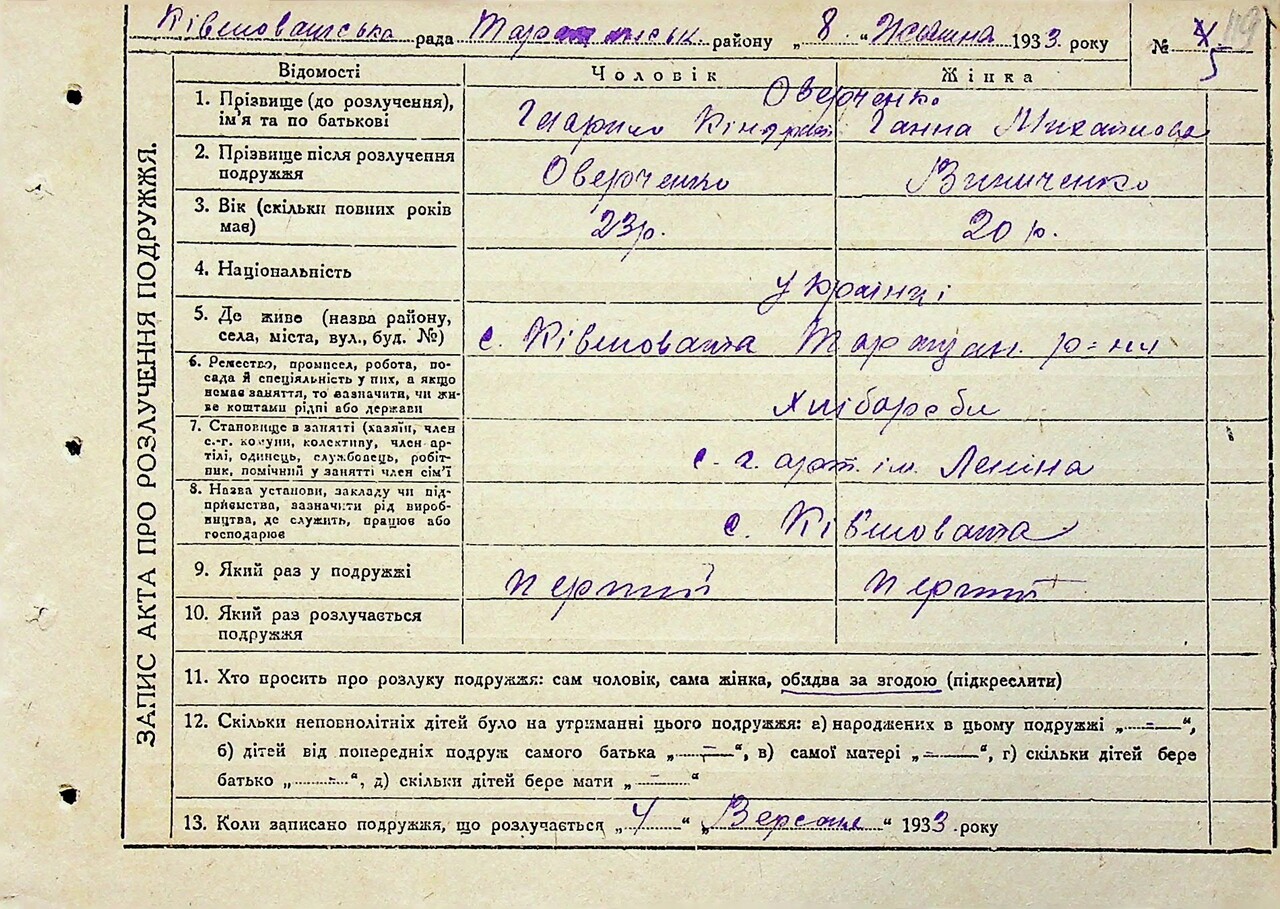 Ківшоватська рада Таращанськ. району „8“ Жовтня 1933 року № 5
119
ЗАПИС АКТА ПРО РОЗЛУЧЕННЯ ПОДРУЖЖЯ.
Відомості Чоловік Жінка
1. Прізвище (до розлучення), ім'я та по батькові
Оверченко
Гаврило Кіндрат Ганна Михайлова
2. Прізвище після розлучення подружжя
Оверченко Виниченко
3. Вік (скільки повних років має)
23р. 20 р.
4. Національність
Українці
5. Де живе (назва району, села, міста, вул., буд. №)
с. Ківшовата Таращан. р-ну
6. Ремество, промисел, робота, посада й спеціяльність у них, а якщо немає заняття, то зазначити, чи живе коштами рідні або держави
Хлібороби
7. Становище в занятті (хазяїн, член с.-г. комуни, колективу, член артілі, одинець, службовець, робітник, помічний у занятті член сім'ї
с. г. арт. ім. Леніна
8. Назва установи, закладу чи підприємства, зазначити рід виробництва, де служить, працює або господарює
с. Ківшовата
9. Який раз у подружжі
перший перший
10. Який раз розлучається подружжя
11. Хто просить про розлуку подружжя: сам чоловік, сама жінка, обидва за згодою (підкреслити)
12. Скільки неповнолітніх дітей було на утриманні цього подружжя: а) народжених в цьому подружжі „ — “,
б) дітей від попередніх подруж самого батька „ — “, в) самої матері „ — “, г) скільки дітей бере
батько „ — “, д) скільки дітей бере мати „ — “
13. Коли записано подружжя, що розлучається „4“ „Версня“ 1933 року